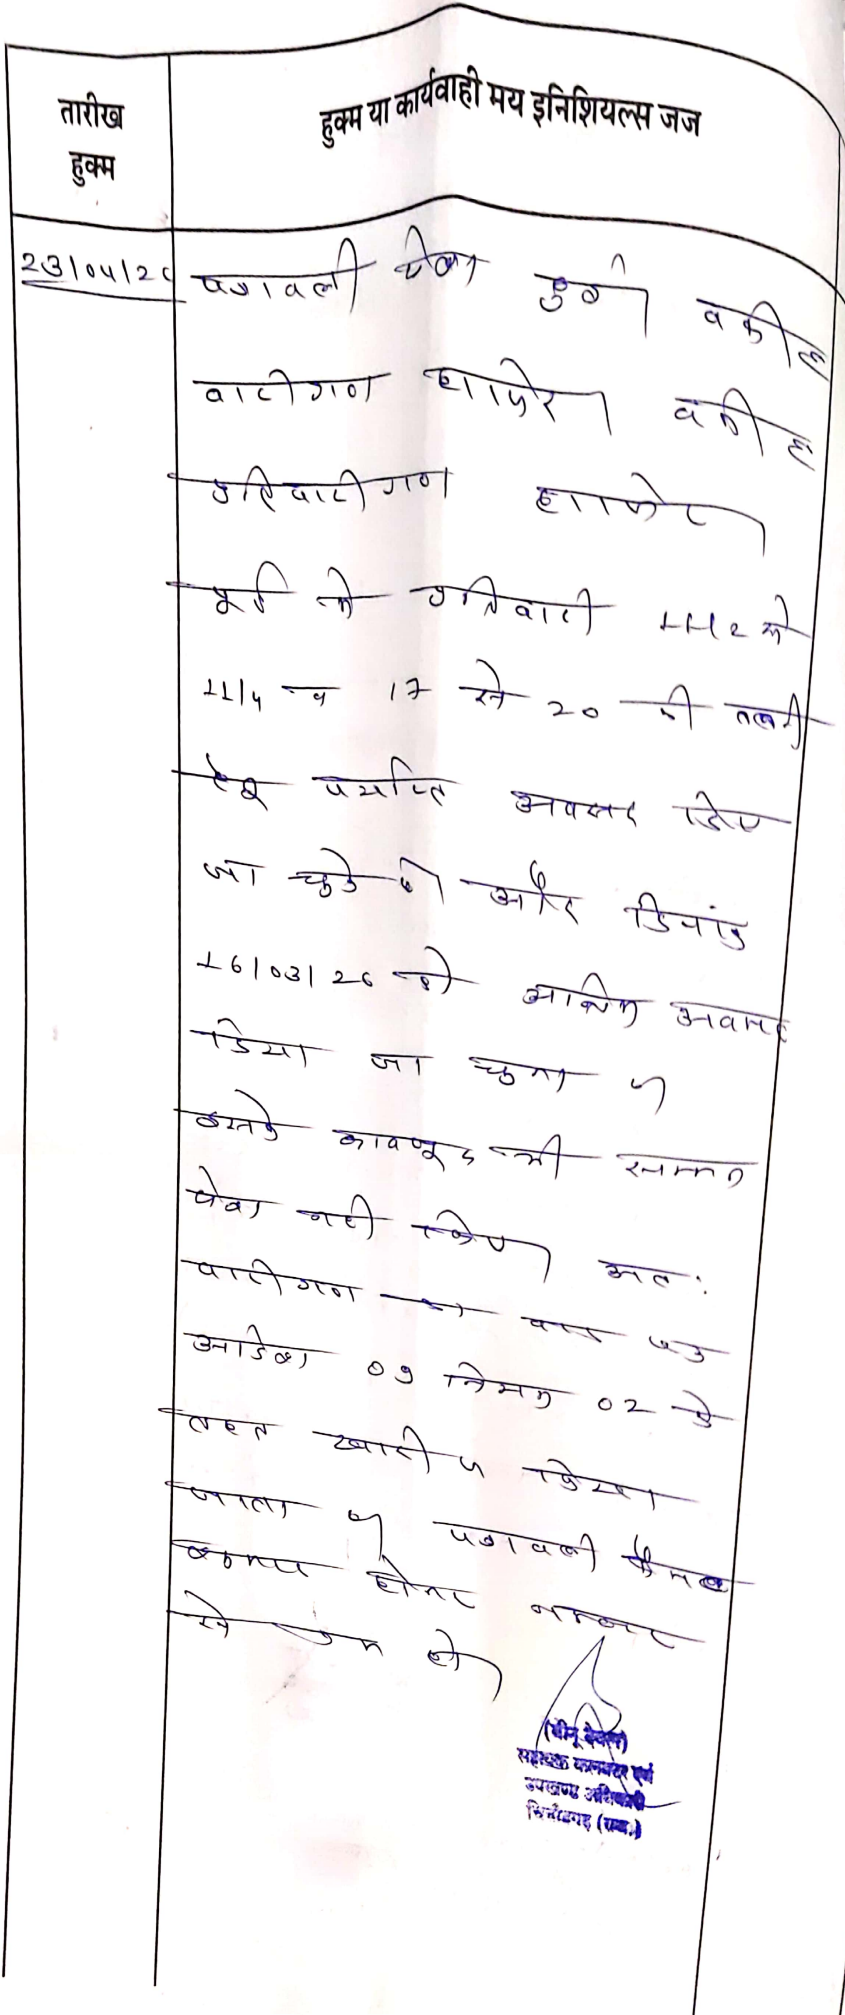 तारीख
हुक्म
हुक्म या कार्यवाही मय इनिशियल्स जज
23/04/26 पत्रावली पेश हुई। वकील
वादीगण हाजिर। वकील
प्रतिवादीगण हाजिर।
पूर्व में प्रतिवादी 11/2 से
11/4 व 17 से 20 की तलबी
हेतु पर्याप्त अवसर दिए
जा चुके है और दिनांक
16/03/26 को अन्तिम अवसर
दिया जा चुका है
इसके बावजूद भी सम्मन
पेश नही किए। अतः
वादीगण का वाद
आदेश 09 नियम 02 के
तहत खारीज किया
जाता है। पत्रावली फैसल
शुमार होकर नम्बर
से कम हो।
(बीनू देवल)
सहायक कलक्टर एवं
उपखण्ड अधिकारी
चित्तौड़गढ़ (राज.)